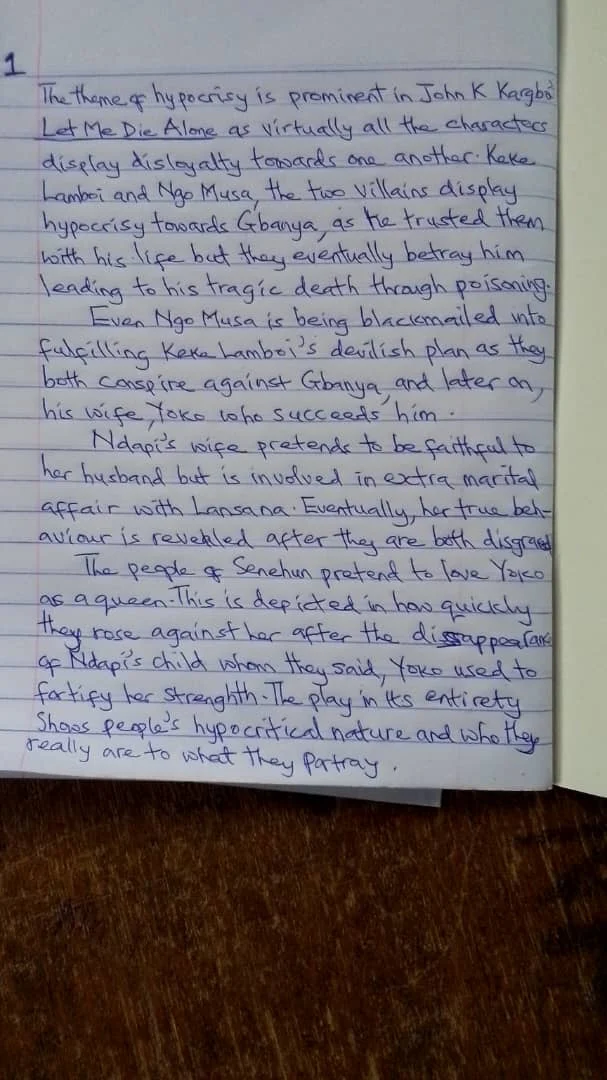 1
The theme of hypocrisy is prominent in John K Kargbo's
Let Me Die Alone as virtually all the characters
display disloyalty towards one another. Keke
Lamboi and Ngo Musa, the two villains display
hypocrisy towards Gbanya, as he trusted them
with his life but they eventually betray him
leading to his tragic death through poisoning.
Even Ngo Musa is being blackmailed into
fulfilling Keke Lamboi's devilish plan as they
both conspire against Gbanya, and later on,
his wife, Yoko who succeeds him.
Ndapi's wife pretends to be faithful to
her husband but is involved in extra marital
affair with Lansana. Eventually, her true beh-
aviour is revealed after they are both disgraced
The people of Senehun pretend to love Yoko
as a queen. This is depicted in how quickly
they rose against her after the disappearance
of Ndapi's child whom they said, Yoko used to
fortify her strenghth. The play in its entirety
Shoos people's hypocritical nature and who they
really are to what they partray.